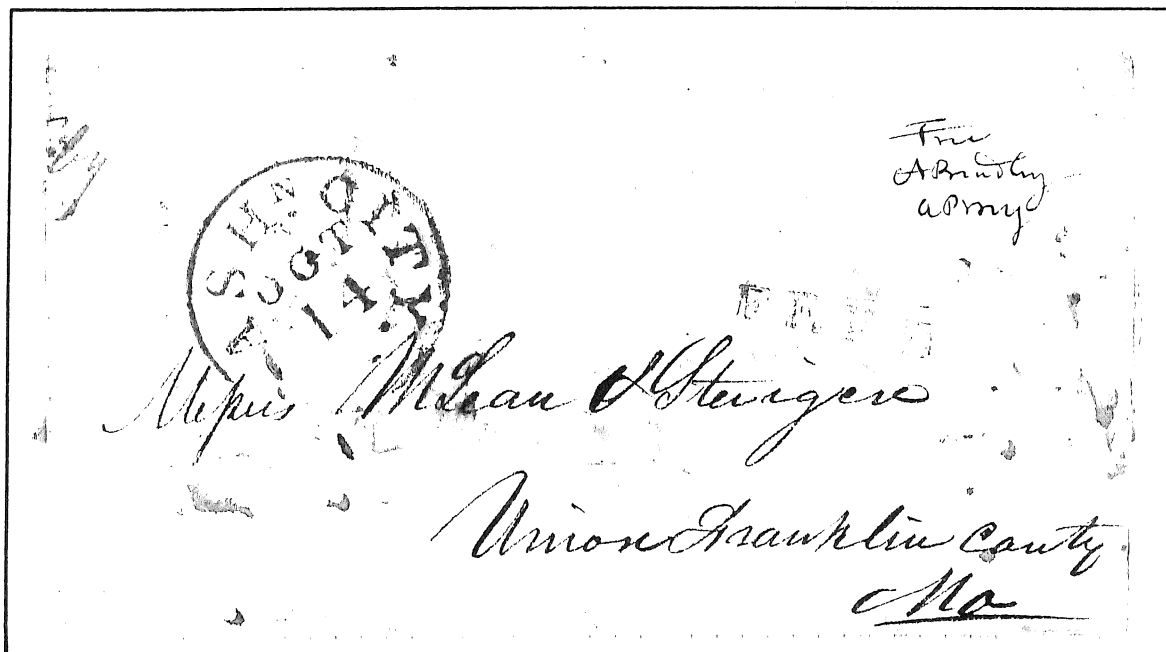 Free
ASHN CITY
OCT
14
FREE
Messrs McLean & Steigers
Union Franklin County
Mo